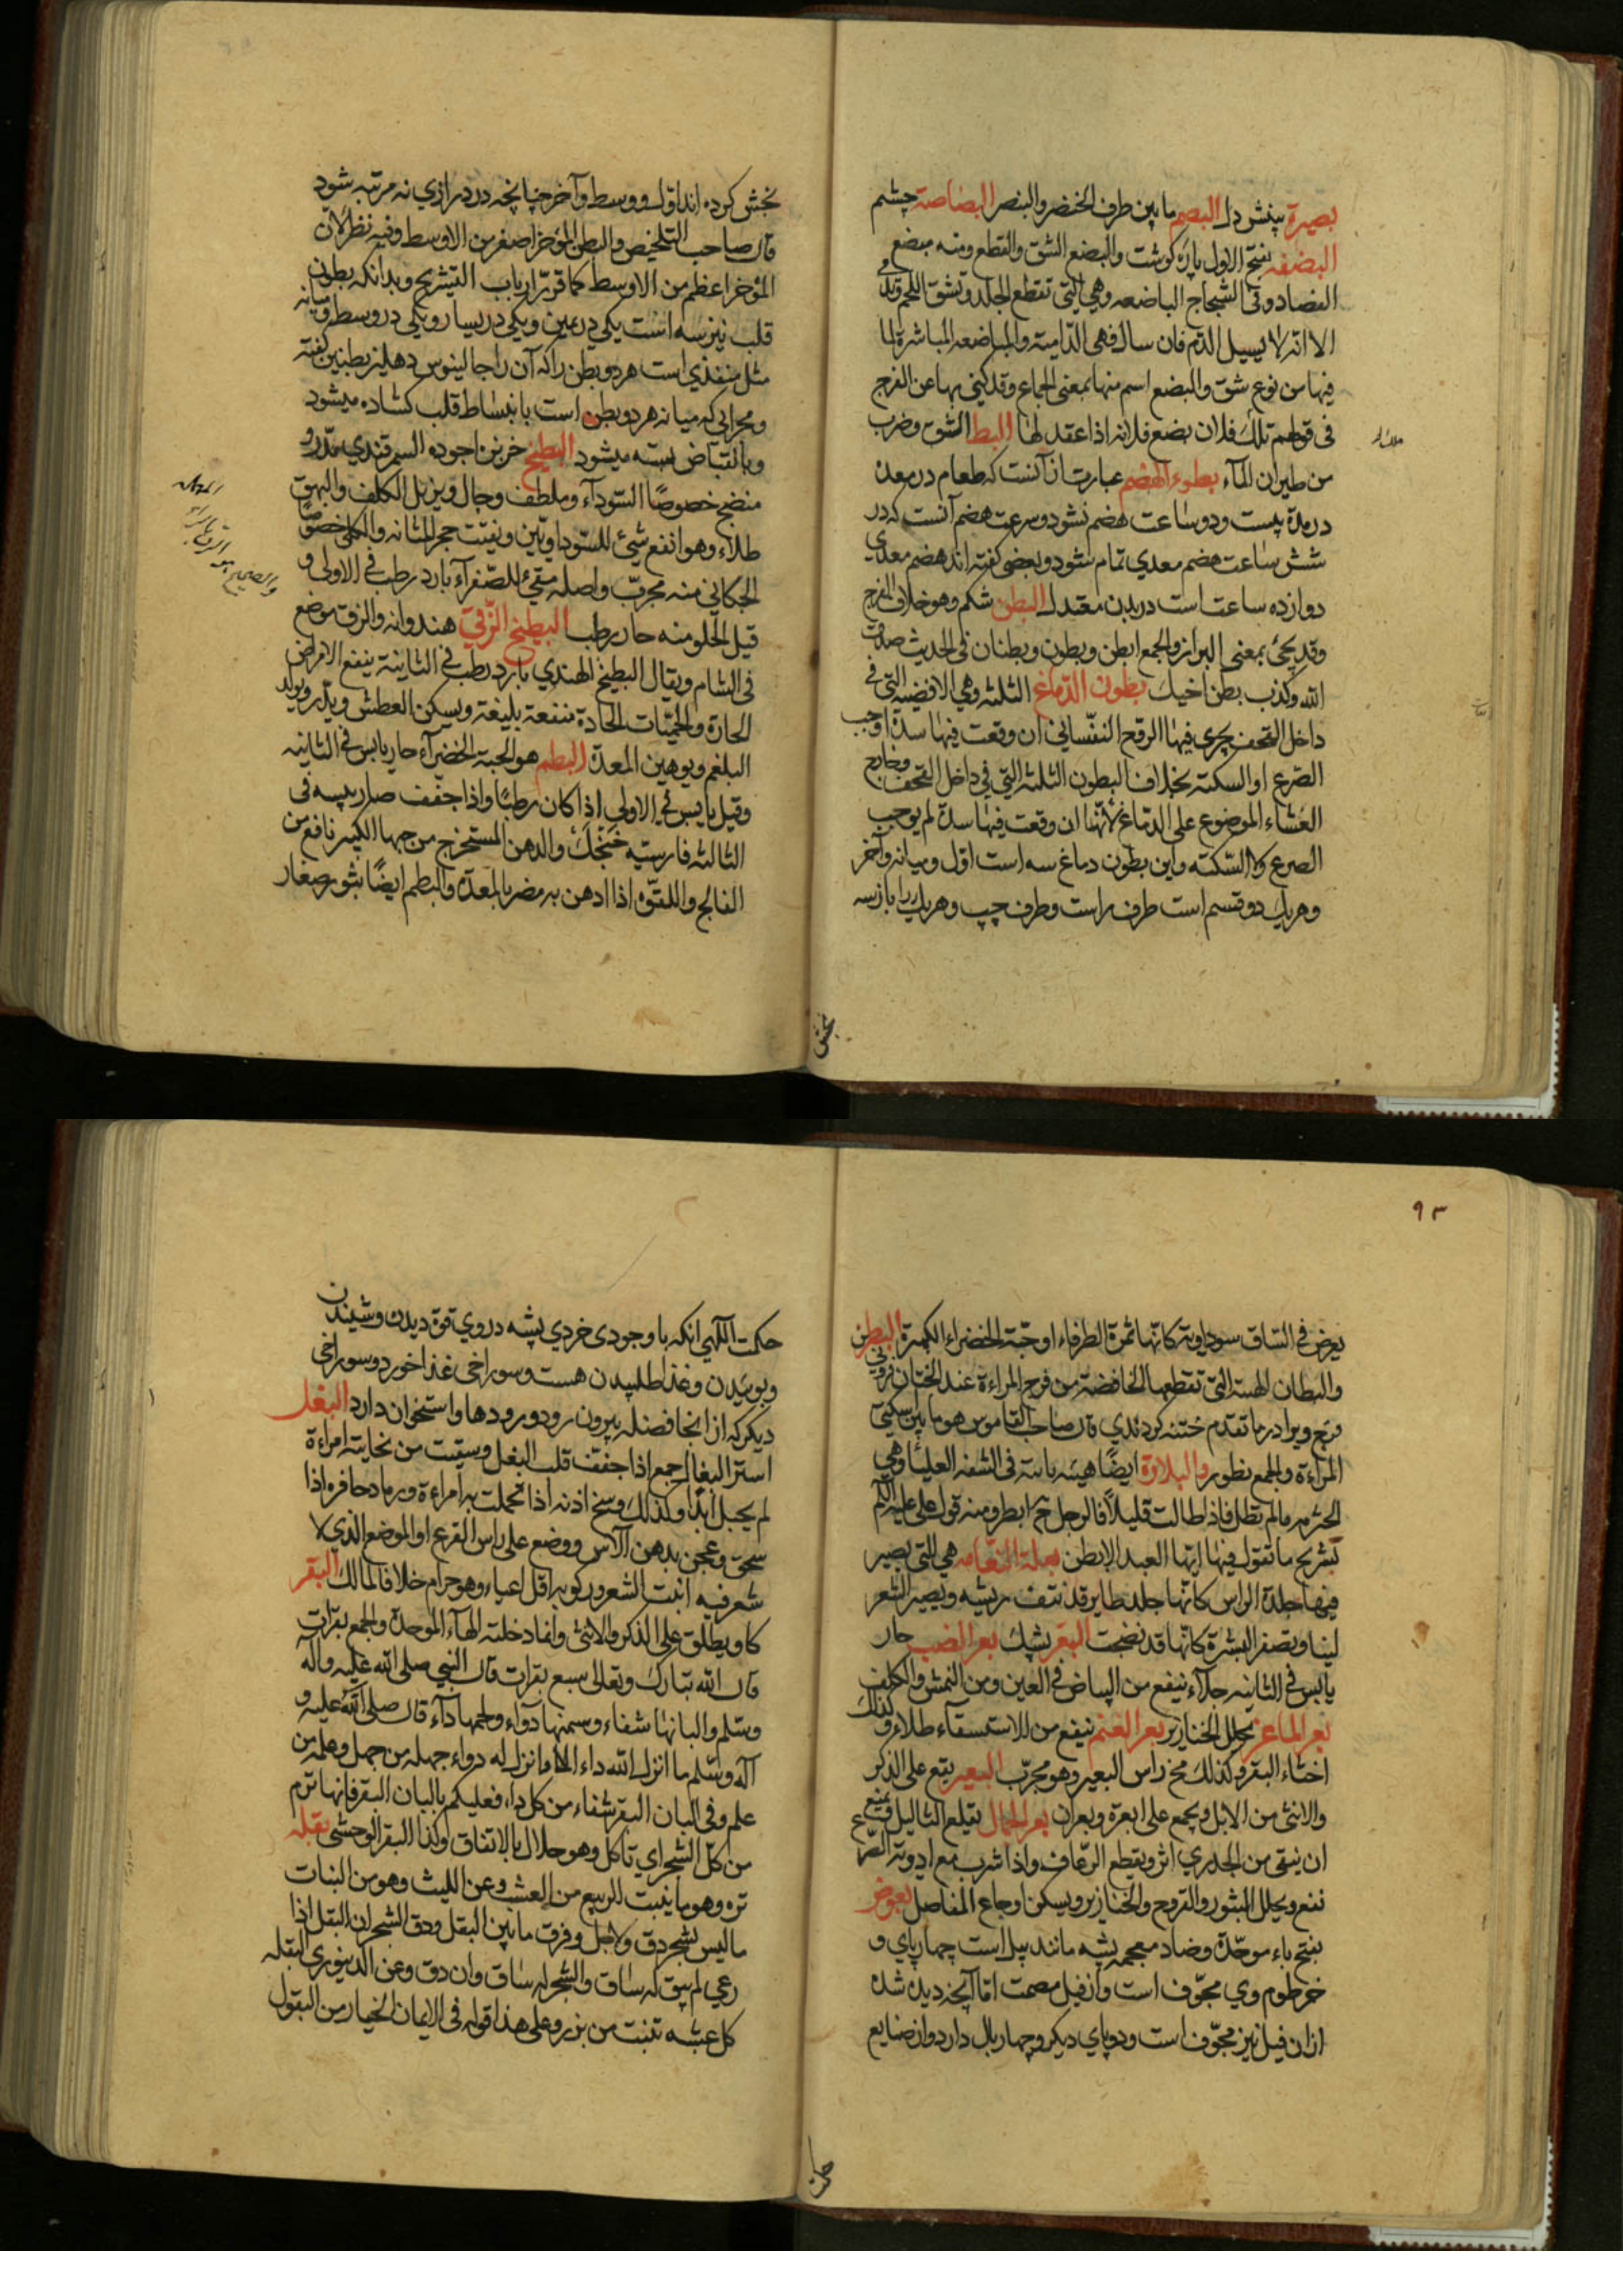 بصیرة بینش دل البصم ما بین طرف الخنصر والبنصر البصاصة چشم
البضعه بفتح الاول پاره کوشت والبضع الشق والقطع ومنه مبضع
الفصاد وفی الشجاج الباضعه وهی التی تقطع الجلد وتشق اللحم
الا انه لا یسیل الدم فان سال فهی الدامیة والمباضعه المباشرة لما
فیها من نوع شق والبضع اسم منها بمعنی الجماع وقد کنی بها عن الفرج
فی قولهم ملک فلان بضع فلانه اذا عقد لها البط الشق وضرب
من طیران الماء بطوء الهضم عبارت از آنست که طعام در معده
در مدة بیست ودو ساعت هضم نشود وسرعت هضم آنست که در
شش ساعت هضم معدی تمام شود وبعضی کفته اند هضم معدی
دوازده ساعت است در بدن معتدل البطن شکم وهو خلاف الظهر
وقد یجئ بمعنی البراز والجمع ابطن وبطون وبطنان فی الحدیث صدق
الله وکذب بطن اخیک بطون الدماغ الثلثة وهی الافضیه التی فی
داخل القحف یجری فیها الروح النفسانی ان وقعت فیها سدة اوجب
الصرع او السکته بخلاف البطون الثلثة التی فی داخل القحف وخارج
الغشاء الموضوع علی الدماغ لانها ان وقعت فیها سدة لم یوجب
الصرع ولا السکته واین بطون دماغ سه است اول ومیانه وآخر
وهریک دو قسم است طرف راست وطرف چپ وهریک را باز سه
بخش
بخش کرده اند اول ووسط وآخر چنانچه در درازی نه مرتبه شود
قال صاحب التلخیص والبطن المؤخر اصغر من الاوسط وفیه نظر لان
المؤخر اعظم من الاوسط کما قرر ارباب التشریح وبدانکه بطون
قلب نیز سه است یکی در یمین ویکی در یسار ویکی در وسط ومیانه
مثل منفذی است هر دو بطن را که آن را جالینوس دهلیز بطنین کفته
ومجرایی که میانه هر دو بطن است بانبساط قلب کشاده میشود
وبانقباض بسته میشود البطیخ خربزه اجوده السمرقندی مدر و
منضج خصوصًا السوداء وملطف وجال ویزیل الکلف والبهق
طلاء وهو انفع شئ للسوداویین ویفتت حجر المثانه والکلی خصوصًا
منه مجرب واصله مقئ للصفراء بارد رطب فی الاولی و
قیل الحلو منه حار رطب البطیخ الزقی هندوانه والزق موضع
فی الشام ویقال البطیخ الهندی بارد رطب فی الثانیة ینفع الامراض
الحارة والحمیات الحادة منفعة بلیغة ویسکن العطش ویدر ویولد
البلغم ویوهین المعدة البطم هو الحبة الخضراء حار یابس فی الثانیه
وقیل یابس فی الاولی اذا کان رطبًا واذا جفف صار یبسه فی
الثالثه فارسیه والدهن المستخرج من حبها الکبیر نافع من
الفالج واللقوه اذا ادهن به مضر بالمعدة والبطم ایضًا بثور صغار
۹۳
یعرض فی الساق سوداویة کانها ثمرة الطرفاء او حبة الخضراء الکمدة البظر
والبطان الهنة التی تقطعها الخافضة من فرج المراءة عند الختان
صاحب القاموس هو ما بین سکتی
المراءة والجمع بظور والبلارة ایضًا هیه ناتئة فی الشفه العلیا وهی
الحثرمه مالم تطل فاذا طالت قلیلاً فالرجل ابظر ومنه قول علی علیه السلام
لشریح ما تقول فیها ایها العبد الابظر بعلة النعامه هی التی یصیر
فیها جلدة الراس کانها جلد طایر قد نتف ریشه ویصیر الشعر
لینا ویصفر البشرة کانها قد نضجت البعر پشک بعر الضب حار
یابس فی الثانیه جلاء ینفع من البیاض فی العین ومن النمش والکلف
بعر الماعز یحلل الخنازیر بعر الغنم ینفع من الاستسقاء طلاء وکذلک
اخثاء البقر وکذلک مخ راس البعیر وهو مجرب البعیر یقع علی الذکر
والانثی من الابل ویجمع علی ابعرة وبعران بعر الجمال یقلع الثالیل ویمنع
ان یبقی من الجدری اثر ویقطع الرعاف واذا شرب مع ادویة الصرع
نفع ویحلل البثور والقروح والخنازیر ویسکن اوجاع المفاصل بعوض
بفتح باء موحدة وضاد معجمه پشه مانند پیل است چهار پای و
خرطوم وی مجوف است وآن فیل مصمت اما آنچه دیده شده
از ان فیل نیز مجوف است ودو پای دیکر وچهار بال دارد واز صنایع
حکمت
حکمت الهی انکه با وجودی خردی پشه در وی قوة دیدن وشنیدن
وبوئیدن وغذا طلبیدن هست وسوراخی غذا خورد وسوراخی
دیکر که از انجا فضله بیرون رود ورودها واستخوان دارد البغل
استر البغال جمع اذا جففت قلب البغل وسقیت من نحاتته امراءة
لم یحبل ابدًا وکذلک وسخ اذنه اذا تحملت به امراءة ورماد حافره اذا
سحق وعجن بدهن الآس ووضع علی راس القرع او الموضع الذی لا
شعر فیه انبت الشعر ورکوبه اقل اعیاء وهو حرام خلافا لمالک البقر
کاو یطلق علی الذکر والانثی وانما دخلته الهاء الموحدة والجمع بقرات
قال الله تبارک وتعالی سبع بقرات قال النبی صلی الله علیه وآله
وسلم والبانها شفاء وسمنها دواء ولحمها داء قال صلی الله علیه و
آله وسلم ما انزل الله داء الا وانزل له دواء جهله من جهل وعلمه من
علم وفی البان البقر شفاء من کل داء فعلیکم بالبان البقر فانها ترم
من کل الشجر ای تاکل وهو حلال بالاتفاق وکذا البقر الوحشی بقله
تره وهو ما ینبت الربیع من العشب وعن اللیث وهو من النبات
ما لیس بشجر دق ولا جل وفرق ما بین البقل ودق الشجر ان البقل اذا
رعی لم یبق له ساق والشجر له ساق وان دق وعن الدینوری البقله
کل عشبه تنبت من بزر وعلی هذا قوله فی الایمان الخیار من البقول